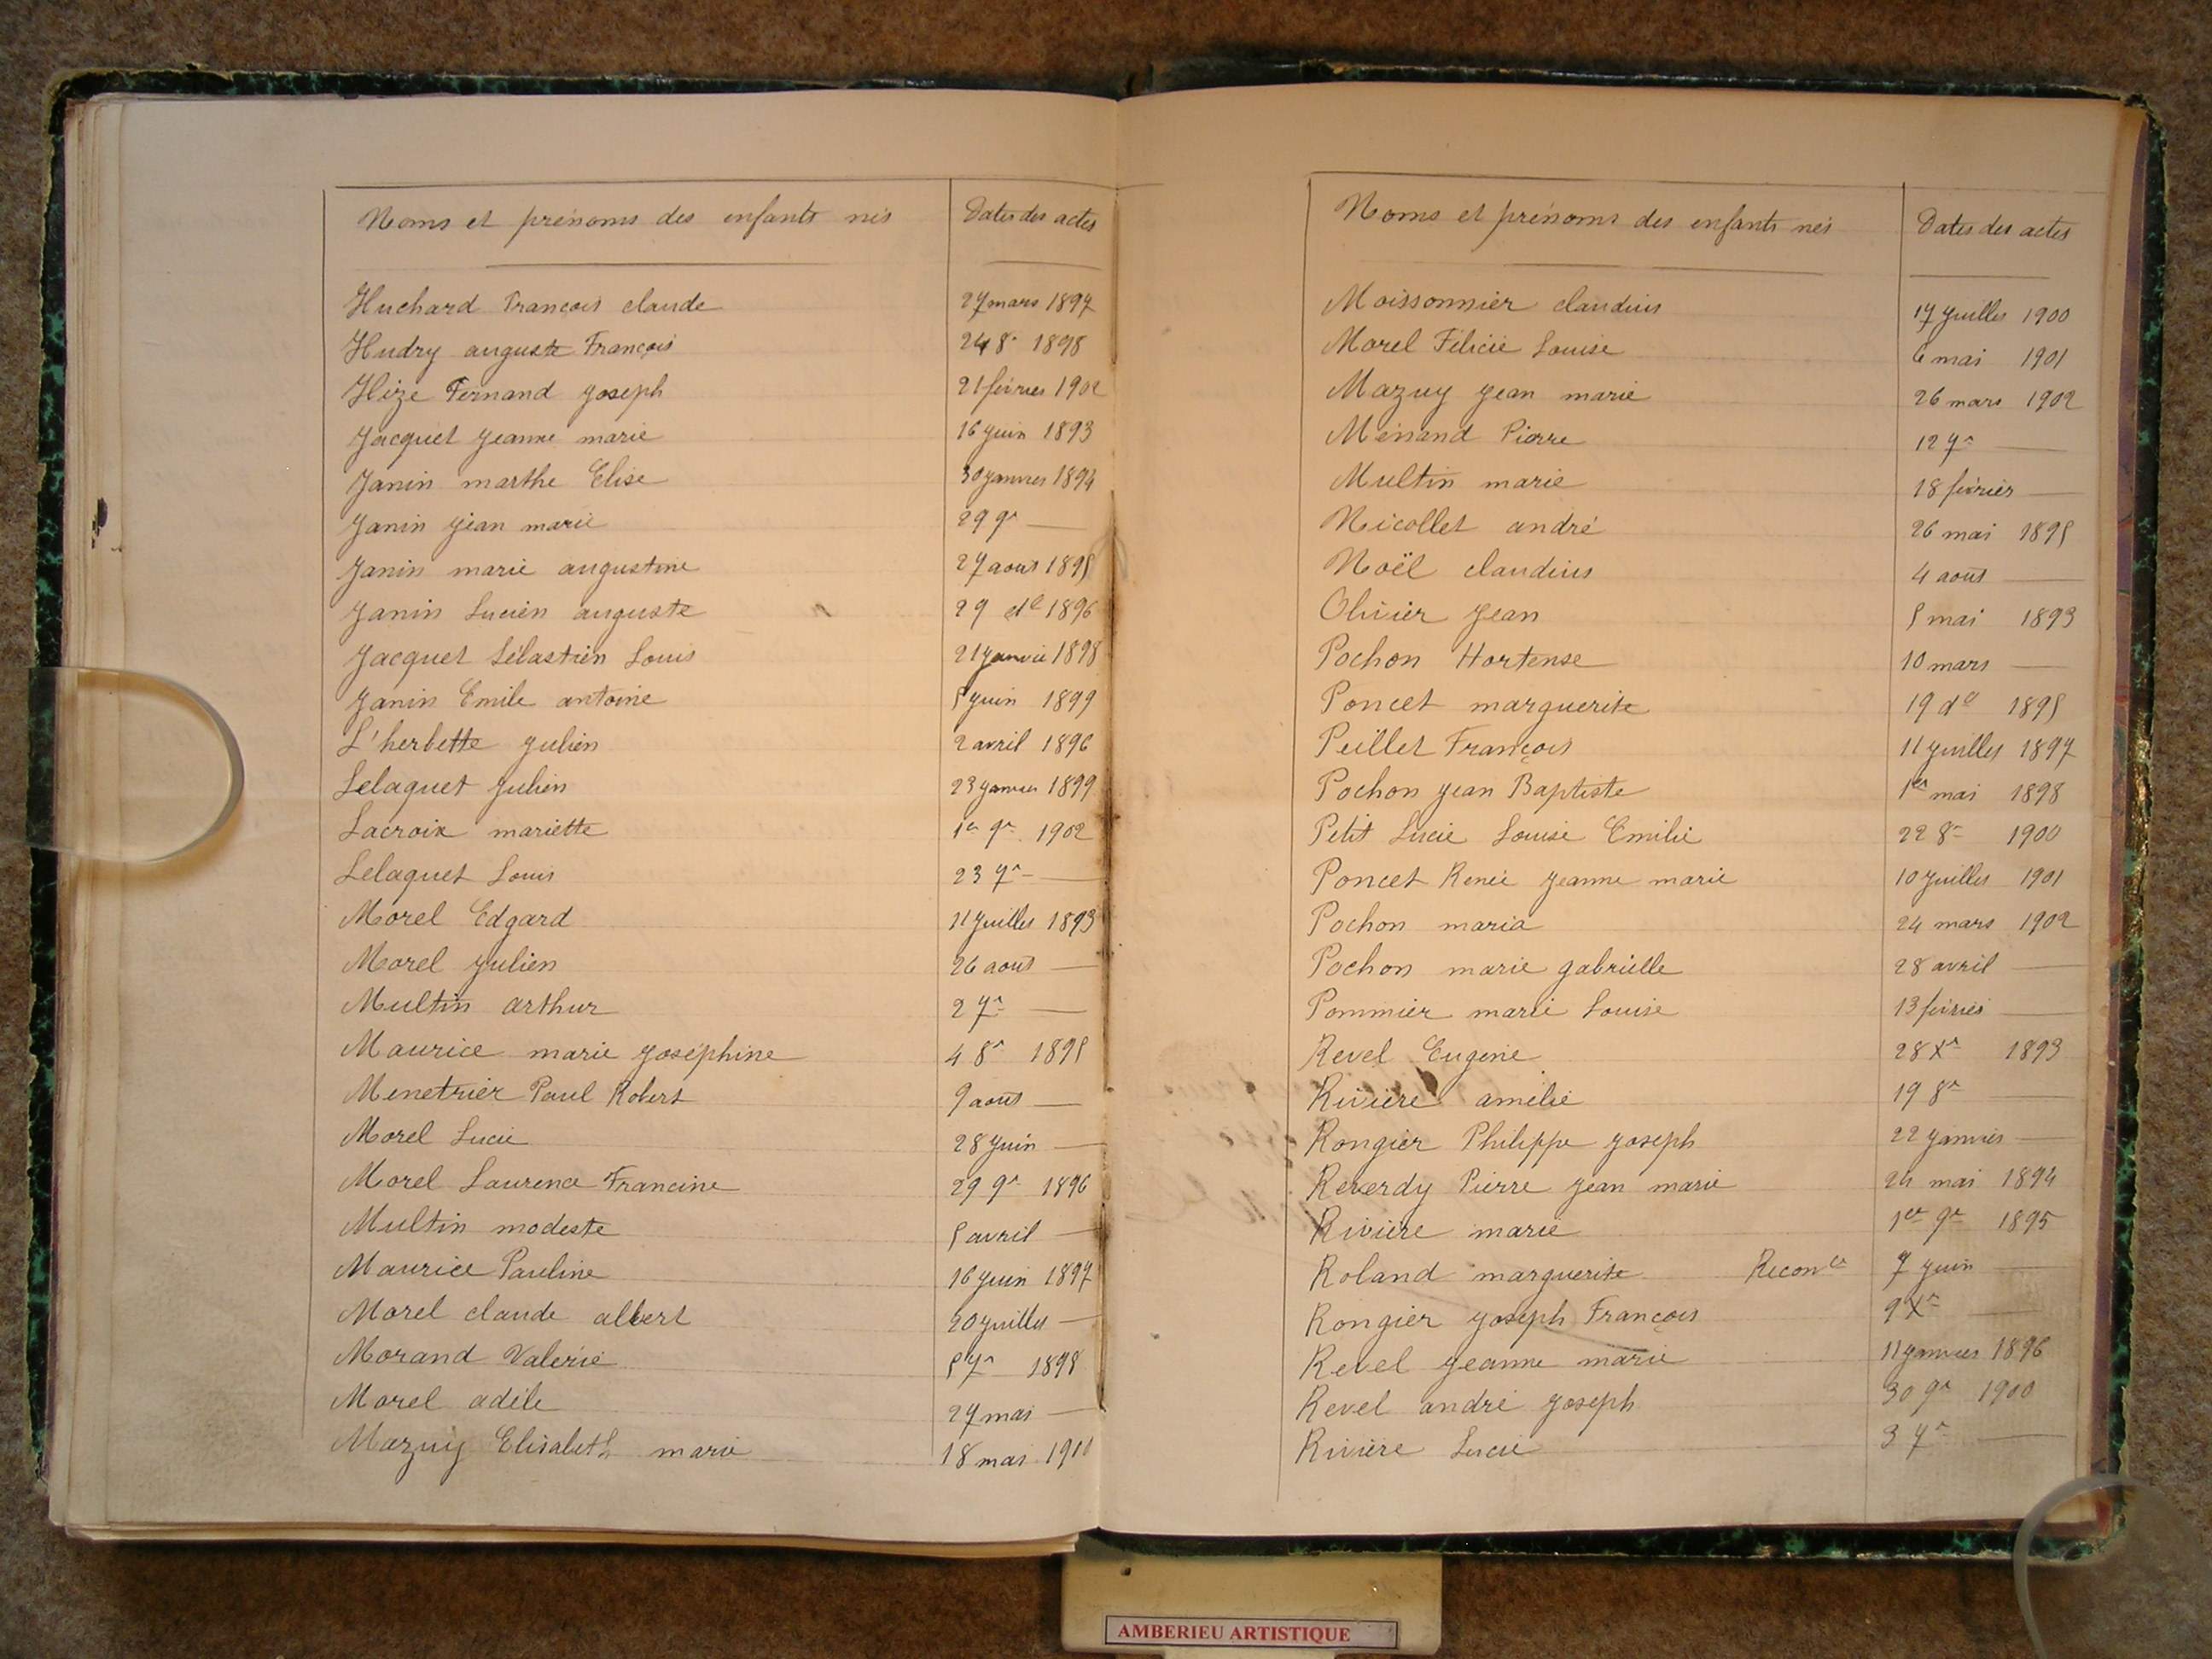 Noms et prénoms des enfants nés Dates des actes
Huchard François claude 27 mars 1897
Hudry auguste François 24 8r 1898
Hize Fernand Joseph 21 février 1902
Jacquet Jeanne marie 16 juin 1893
Janin marthe Elise 30 janvier 1894
Janin Jean marie 29 9r —
Janin marie augustine 27 aout 1895
Janin Lucien auguste 29 do 1896
Jacquet Sélastien Louis 21 janvier 1898
Janin Emile antoine 5 juin 1899
L'herbette Julien 2 avril 1896
Lelaquet Julien 23 janvier 1899
Lacroix mariette 1er 9r 1902
Lelaquet Louis 23 7r —
Morel Edgard 11 juillet 1893
Morel Julien 26 aout —
Multin arthur 2 7r —
Maurice marie Joséphine 4 8r 1895
Menetrier Paul Robert 9 aout —
Morel Lucie 28 juin —
Morel Laurence Francine 29 9r 1896
Multin modeste 5 avril —
Maurice Pauline 16 juin 1897
Morel claude albert 20 juillet —
Morand Valérie 5 7r 1898
Morel adèle 27 mai —
Mazuy Elisabeth marie 18 mai
Noms et prénoms des enfants nés Dates des actes
Moissonnier claudius 17 juillet 1900
Morel Félicie Louise 6 mai 1901
Mazuy Jean marie 26 mars 1902
Ménand Pierre 12 7r —
Multin marie 18 février —
Nicollet andré 26 mai 1895
Noël claudius 4 août —
Olivier Jean 5 mai 1893
Pochon Hortense 10 mars —
Poncet marguerite 19 do 1895
Peillet François 11 juillet 1897
Pochon Jean Baptiste 1er mai 1898
Petit Lucie Louise Emilie 22 8r 1900
Poncet Renée Jeanne marie 10 juillet 1901
Pochon maria 24 mars 1902
Pochon marie gabrielle 28 avril —
Pommier marie Louise 13 février —
Revel Eugénie 28 Xr 1893
Rivière amélie 19 8r
Rongier Philippe Joseph 22 janvier —
Reverdy Pierre Jean marie 24 mai 1894
Rivière marie 1er 9r 1895
Roland marguerite Reconce 7 juin —
Rongier Joseph François 9 Xr —
Revel Jeanne marie 11 janvier 1896
Revel andré Joseph 30 9r 1900
Rivière Lucie 3 7r —
AMBERIEU ARTISTIQUE